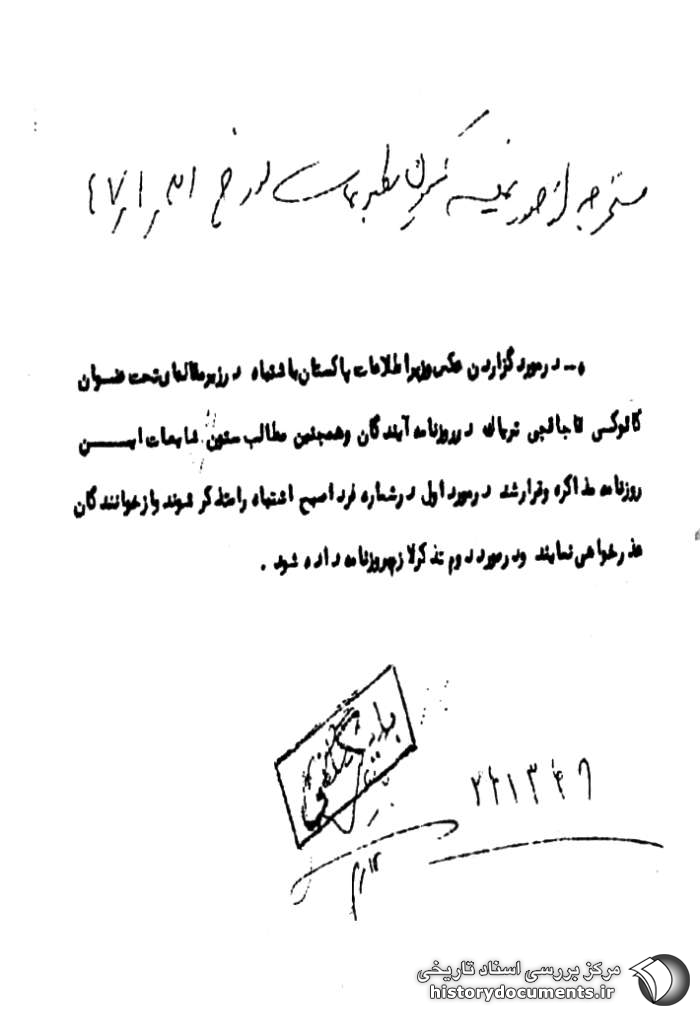 مستخرجه از صورتجلسه کمیسیون مطبوعات مورخ
۵ــ در مورد گزاردن عکس وزیر اطلاعات پاکستان باشتباه در زیر مقاله‌ای تحت عنوان
قاچاقچی تریاک در روزنامه آیندگان و همچنین مطالب ستون شایعات ایــــن
روزنامه مذاکره و قرار شد در مورد اول در شماره فردا صبح اشتباه را متذکر شوند و از خوانندگان
عذرخواهی نمایند و در مورد دوم تذکر لازم بروزنامه داده شود .
بایگانی
۲۴۱۳۴۶
مرکز بررسی اسناد تاریخی
historydocuments.ir